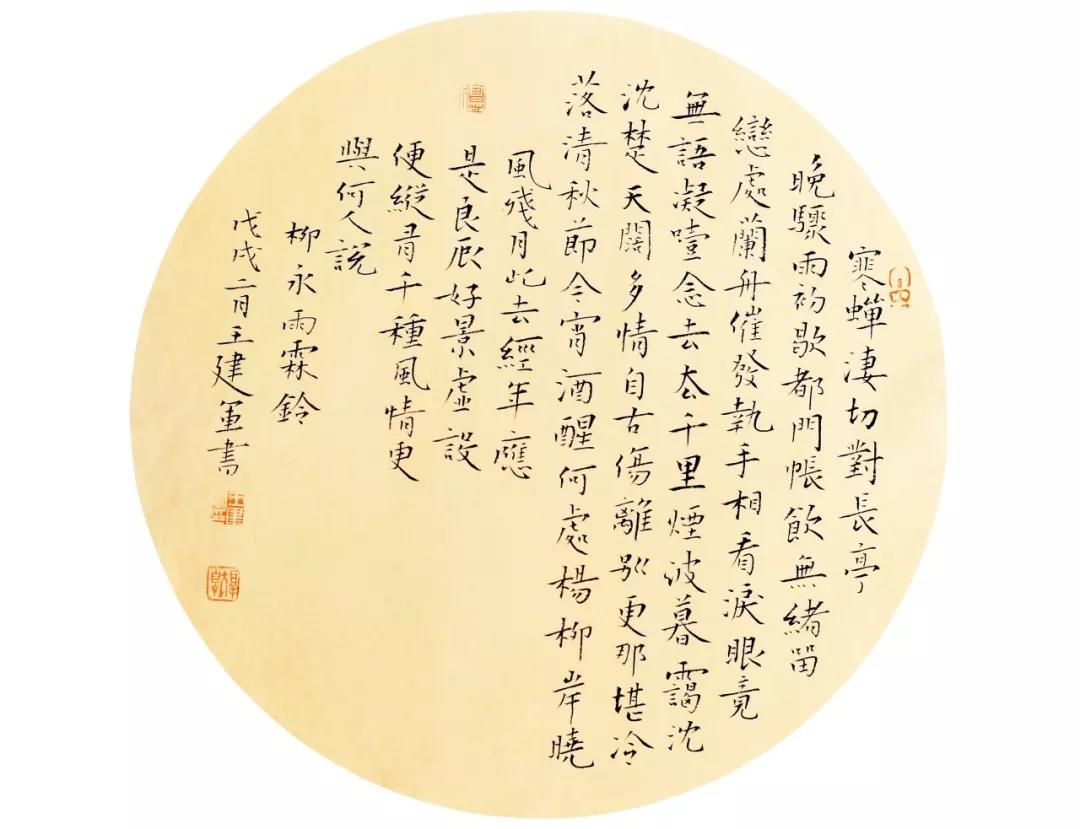 寒蟬淒切對長亭
晚驟雨初歇都門帳飲無緒留
戀處蘭舟催發執手相看淚眼竟
無語凝噎念去厺千里煙波暮靄沈
沈楚天闊多情自古傷離別更那堪冷
落清秋節今宵酒醒何處楊柳岸曉
風殘月此去經年應
是良辰好景虛設
便縱有千種風情更
與何人說
柳永雨霖鈴
戊戌二月王建軍書